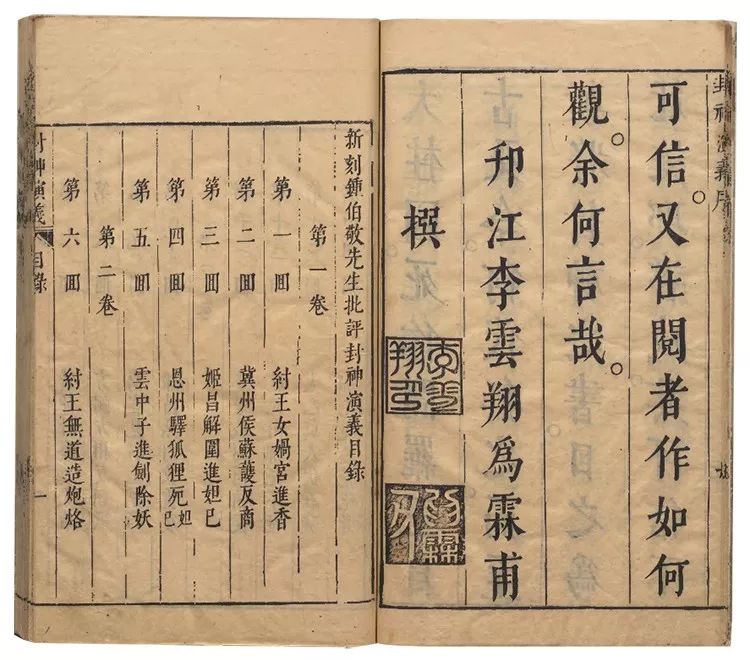 封神演義序
可信。又在閱者作如何
觀。余何言哉。
邗江李雲翔爲霖甫
撰
李雲翔印
新刻鍾伯敬先生批評封神演義目錄
第一卷
第一回 紂王女媧宮進香
第二回 冀州侯蘇護反商
第三回 姬昌解圍進妲己
第四回 恩州驛狐狸死妲己
第五回 雲中子進劍除妖
第二卷
第六回 紂王無道造炮烙
封神演義 目錄 一